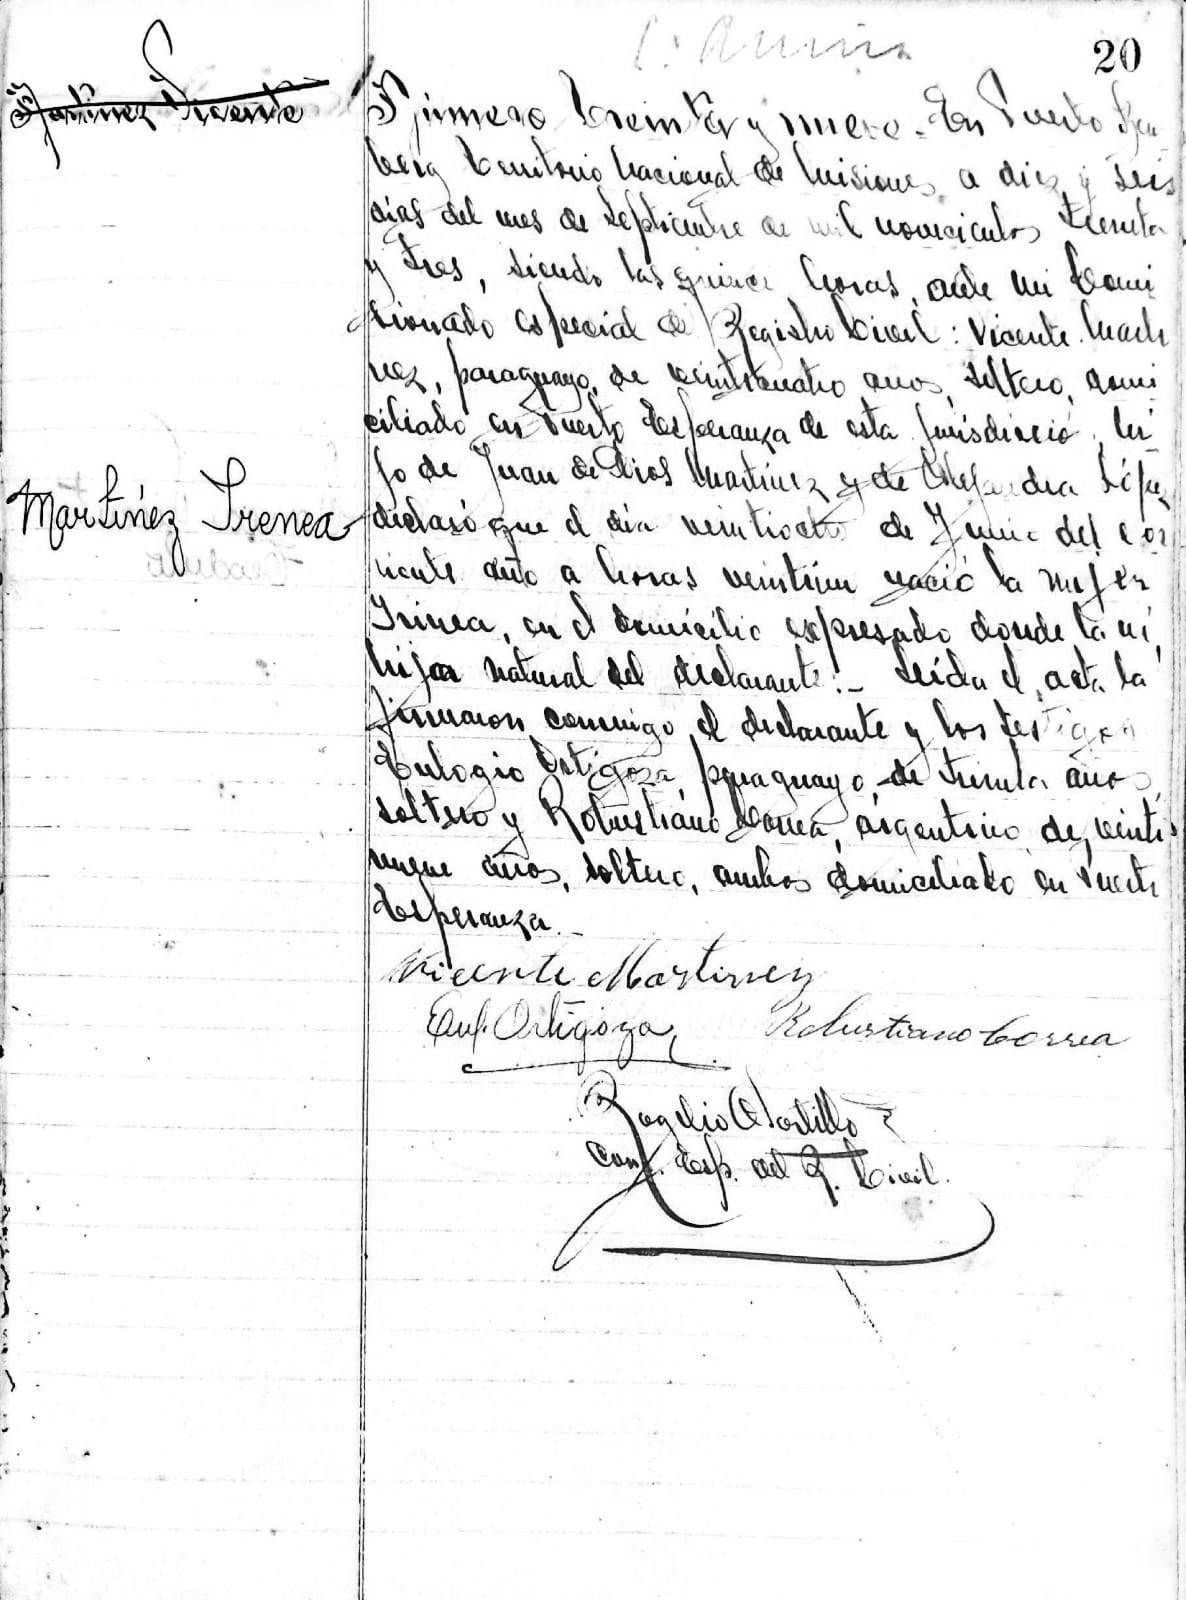 20
Martinez Vicente
Número treinta y nueve. En Puerto
Territorio Nacional de Misiones, a diez y seis
días del mes de Septiembre de mil novecientos treinta
y tres, siendo las quince horas, ante mi Comi
sionado especial de Registro Civil: Vicente Marti
nez, paraguayo, de veinticuatro años, soltero, domi
ciliado en Puerto Esperanza de esta jurisdicció, hi
jo de Juan de Dios Martínez y de Alejandra López
declaró que el día veintiocho de Junio del cor
Martínez Irenea
riente año a horas veintiún nació la mujer
Irinea, en el domicilio expresado donde
hija natural del declarante.- Leída el acta la
firmaron conmigo el declarante y los testigos
Eulogio Ortigoza, paraguayo, de treinta años,
soltero y Robustiano Correa, argentino, de, veinti
nueve años, soltero, ambos domiciliado en Puerto
Esperanza.-
Vicente Martinez
Eul. Ortigoza
Robustiano Correa
Rogelio Portillo
Com. Esp. del R. Civil.